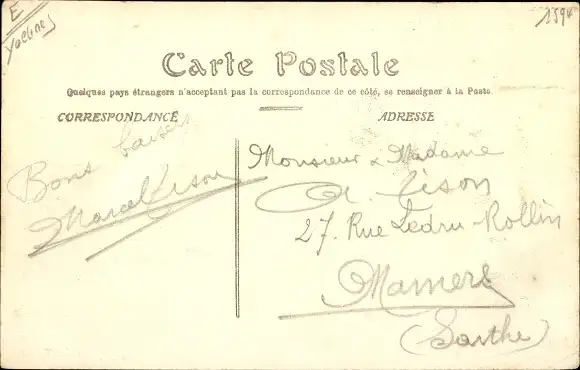 E
Yveline
1594
Carte Postale
Quelques pays étrangers n'acceptant pas la correspondance de ce côté, se renseigner à la Poste.
CORRESPONDANCE
ADRESSE
Bons baisers
Marcel Tison
Monsieur & Madame
A. Tison
27. Rue Ledru-Rollin
Mamers
(Sarthe)